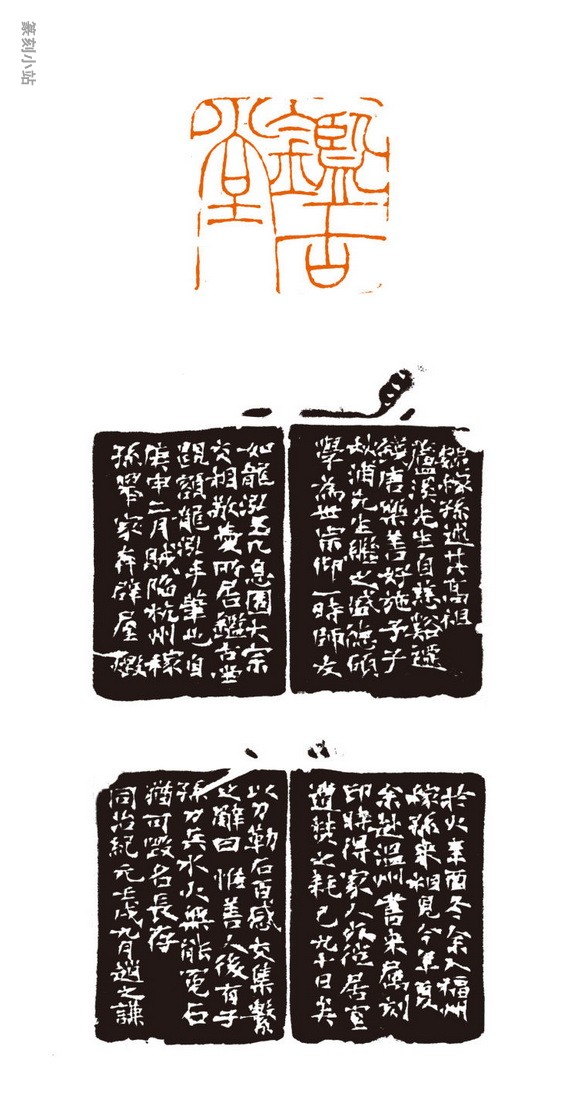 篆刻小站
鑑古堂
魏稼孫述其高祖
蘆溪先生自慈谿遷
錢唐樂善好施予子
秋浦先生繼之盛德碩
學為世宗仰一時師友
如龍泓玉几息園大宗
交相敬愛所居鑑古堂
額龍泓手筆也自
庚申二月賊陷杭州稼
孫挈家奔辟屋燬
於火辛酉冬余入福州
稼孫來相見今年夏
余赴温州書来屬刻
印時得家人從居宣
遭焚之耗已九十日矣
以刀勒石百感交集繫
之辭曰惟善人後有子
孫刀兵水火無能冤石
猶可毀名長存
同治紀元壬戌九月趙之謙